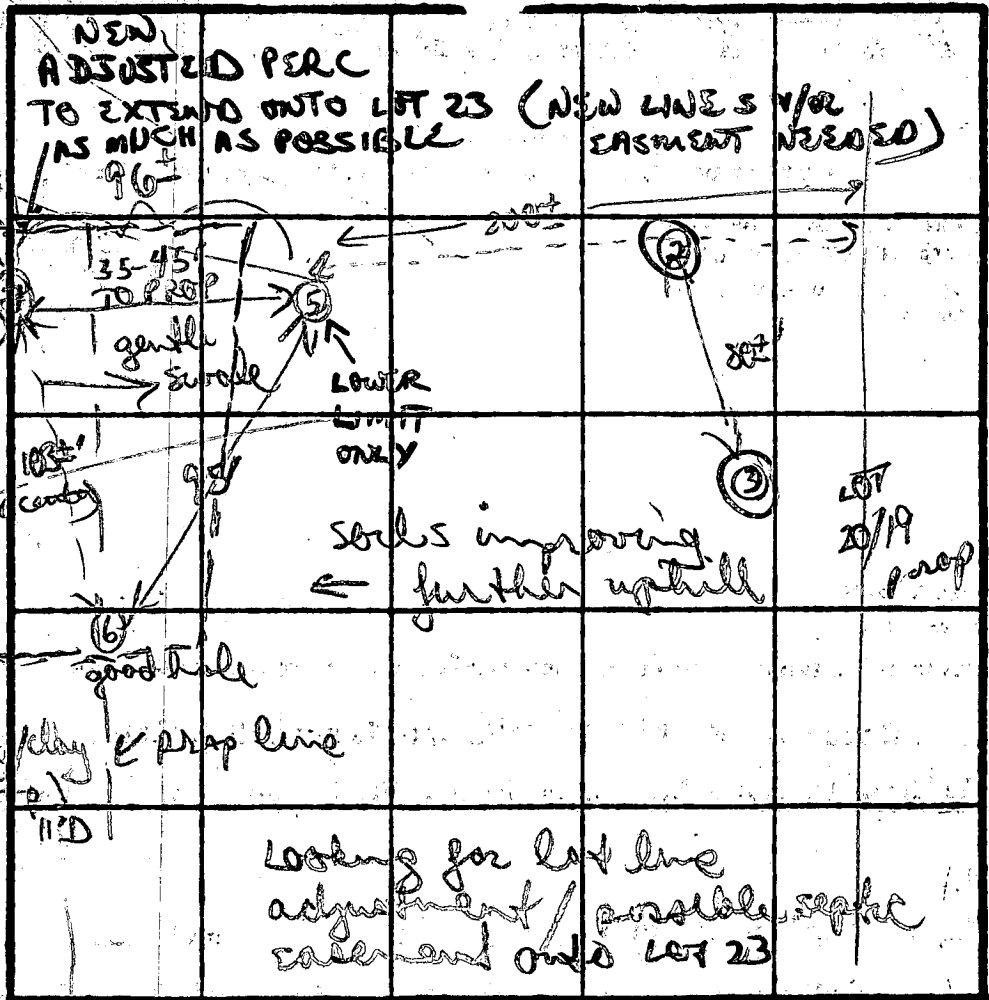 NEW
ADJUSTED PERC
TO EXTEND ONTO LOT 23 (NEW LINES &/OR
AS MUCH AS POSSIBLE EASEMENT NEEDED)
96±
200±
2
35-45'
TO PROP
5
gentle
swale
80±
LOWER
LIMIT
ONLY
103±'
95
3
LOT
20/19
prop
soils improving
← further uphill
6
good hole
/clay ↙ prop line
11'D
Looking for lot line
adjustment / possible septic
easement onto LOT 23